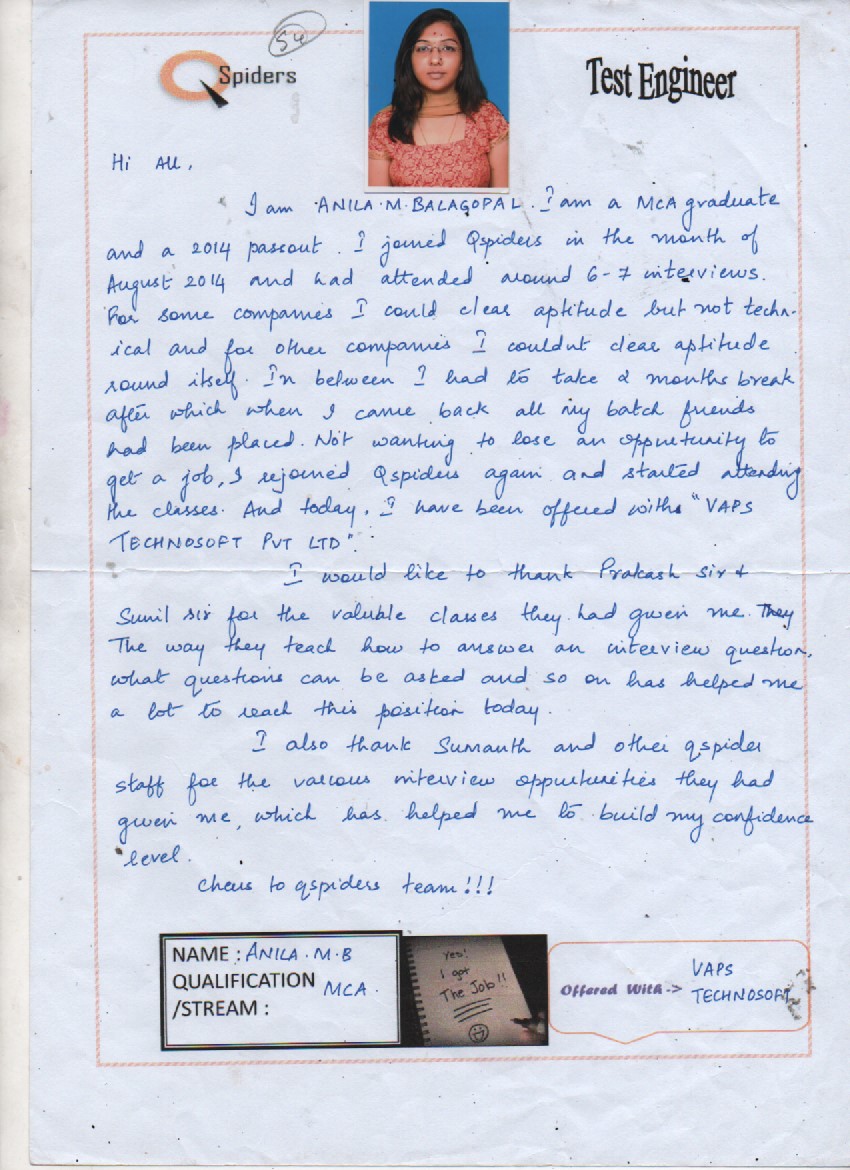 54
Spiders
Test Engineer
Hi All,
I am ANILA.M.BALAGOPAL. I am a MCA graduate
and a 2014 passout. I joined Qspiders in the month of
August 2014 and had attended around 6-7 interviews.
For some companies I could clear aptitude but not techn-
ical and for other companies I couldnt clear aptitude
round itself. In between I had to take 2 months break
after which when I came back all my batch friends
had been placed. Not wanting to lose an oppurtunity to
get a job, I rejoined Qspiders again and started attending
the classes. And today, I have been offered with "VAPS
TECHNOSOFT PVT LTD".
I would like to thank Prakash Sir +
Sunil sir for the valuble classes they had given me. They
The way they teach how to answer an interview question,
what questions can be asked and so on has helped me
a lot to reach this position today.
I also thank Sumanth and other qspider
staff for the various interview oppurtunities they had
given me, which has helped me to build my confidence
level.
Cheers to qspiders team!!!
NAME : ANILA.M.B
QUALIFICATION MCA.
/STREAM :
Yes!
I got
The Job!!
Offered With ->
VAPS
TECHNOSOFT